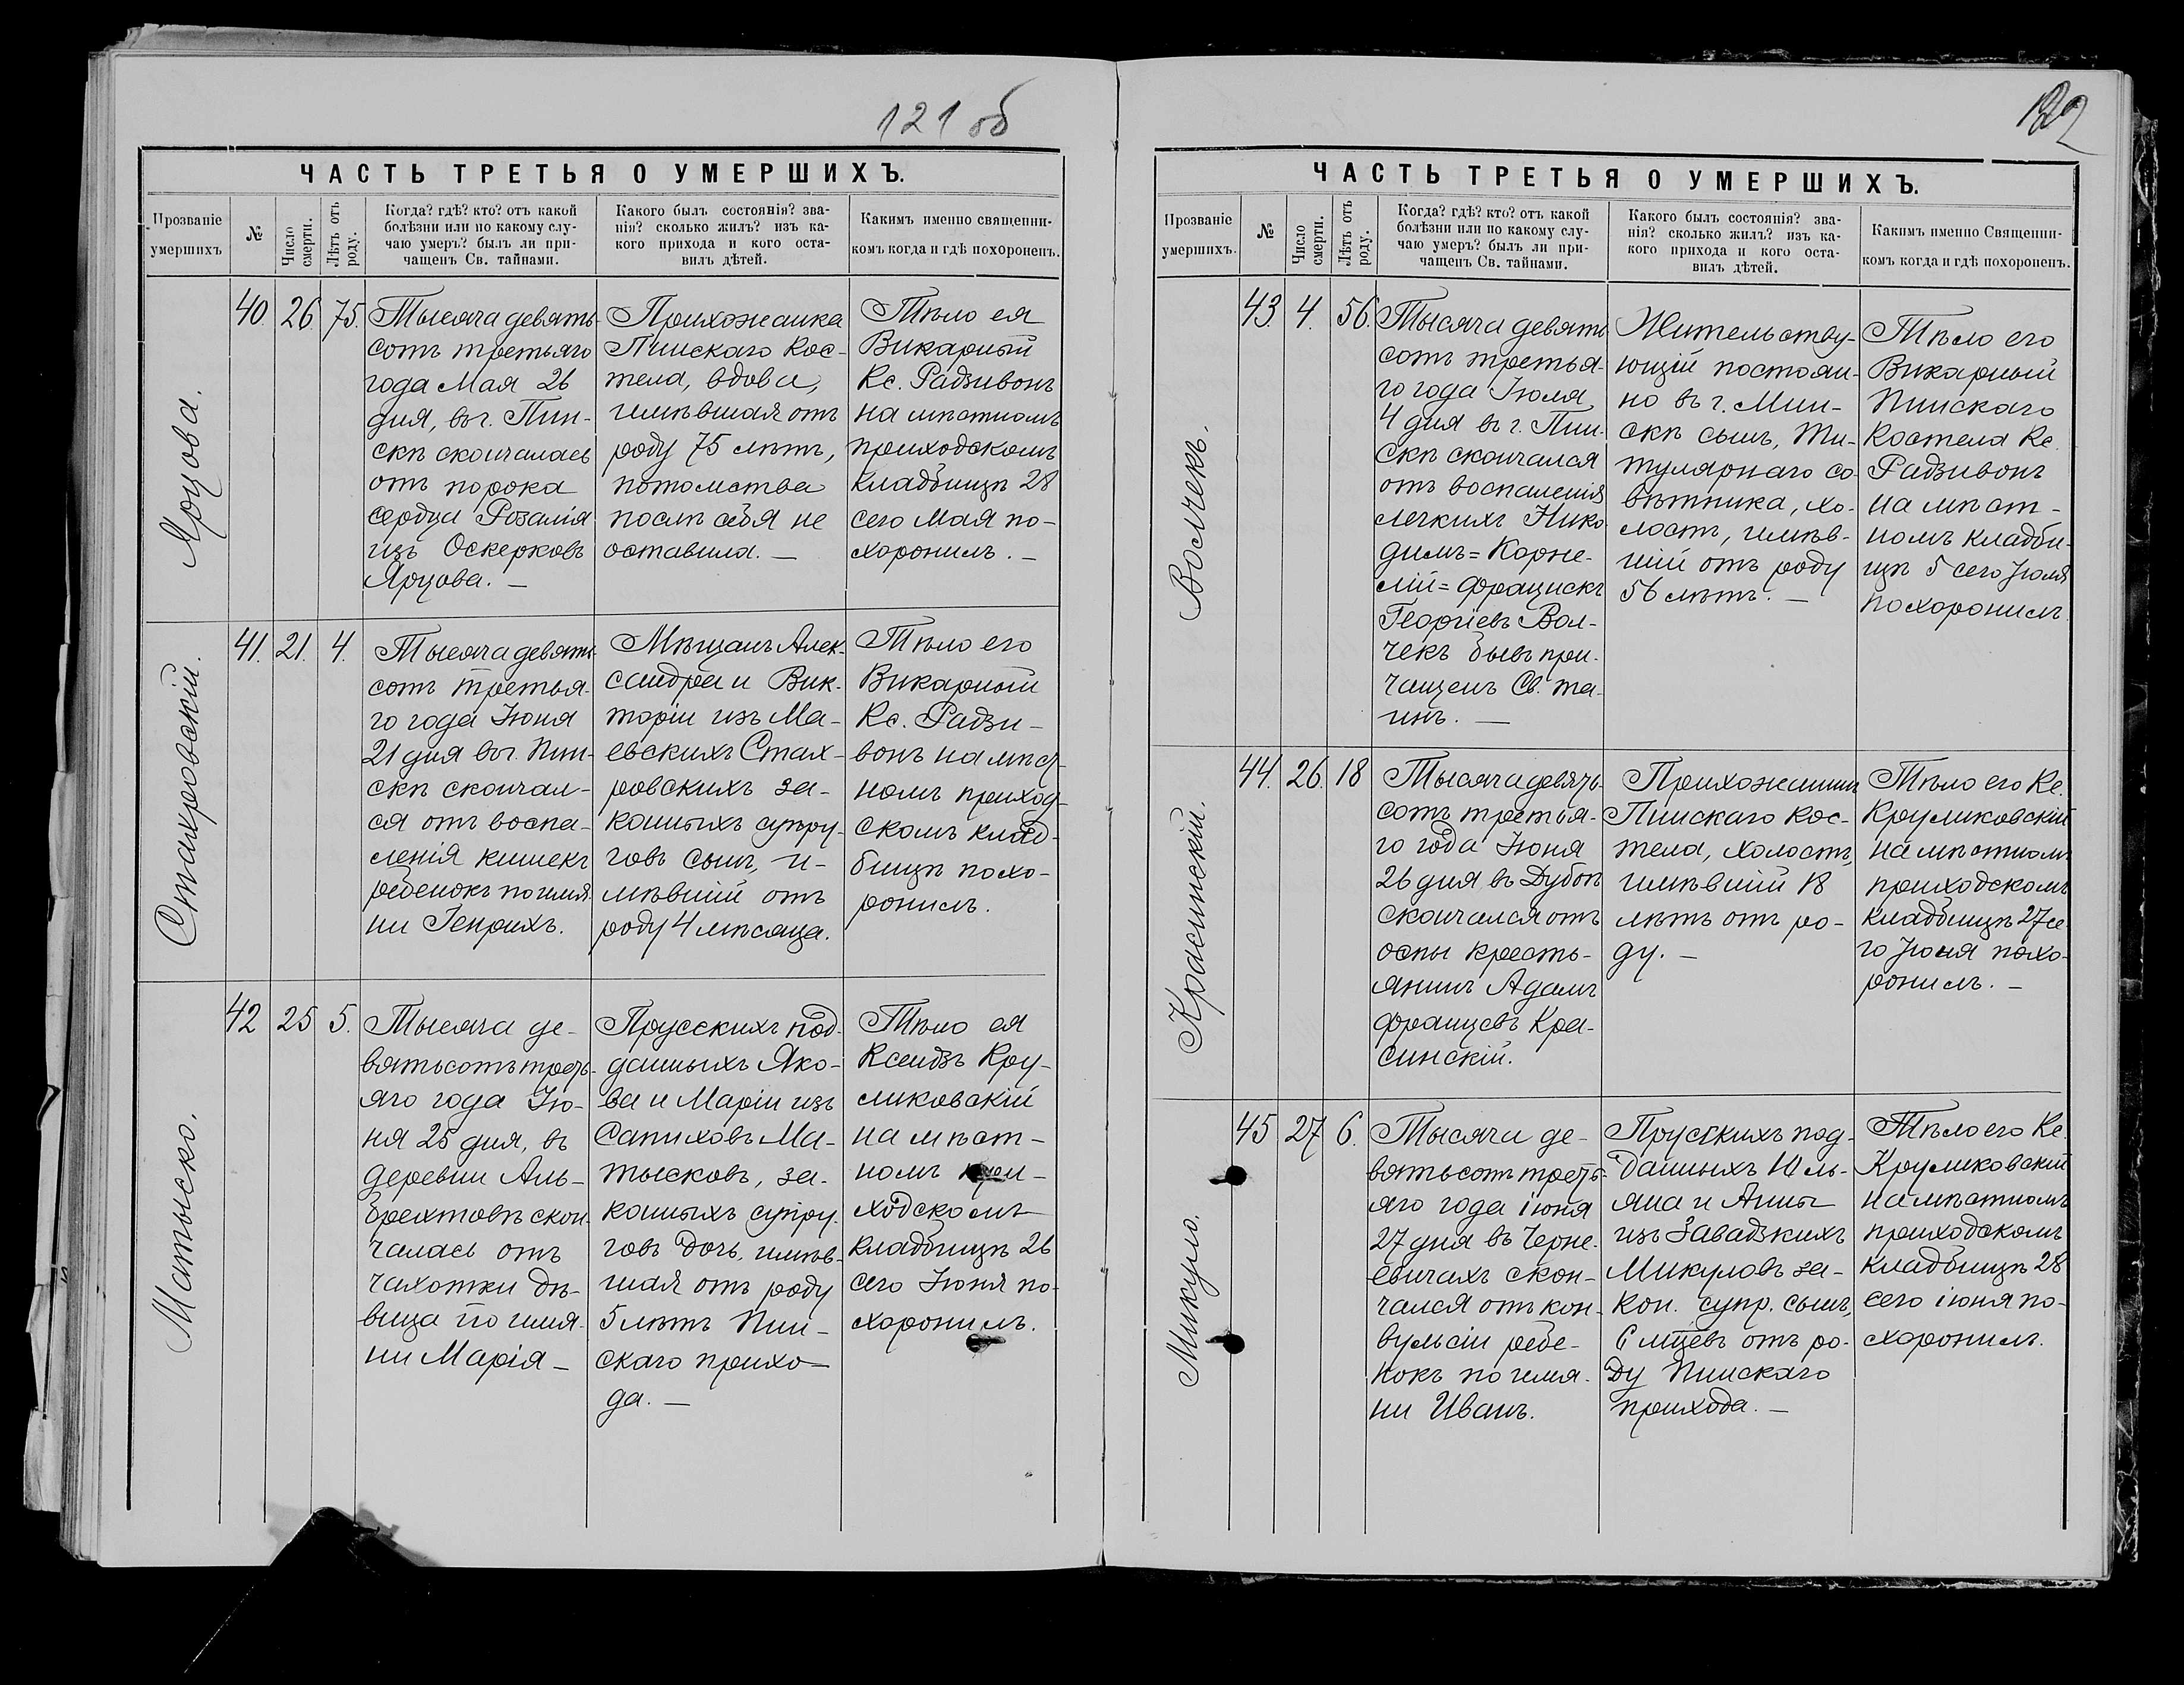 121 об
ЧАСТЬ ТРЕТЬЯ О УМЕРШИХЪ.
Прозваніе
умершихъ
№
Число
смерти.
Лѣтъ отъ
роду.
Когда? гдѣ? кто? отъ какой
болѣзни или по какому слу-
чаю умеръ? былъ ли при-
чащенъ Св. тайнами.
Какого былъ состоянія? зва-
нія? сколько жилъ? изъ ка-
кого прихода и кого оста-
вилъ дѣтей.
Какимъ именно священни-
комъ когда и гдѣ похороненъ.
Ярцова.
40.
26
75.
Тысяча девять-
сотъ третьяго
года Мая 26
дня, въ г. Пин-
скѣ скончалась
отъ порока
сердца Розалія
изъ Оскерковъ
Ярцова. —
Прихожанка
Пинскаго Кос-
тела, вдова,
имѣвшая отъ
роду 75 лѣтъ,
потомства
послѣ себя не
оставила. —
Тѣло ея
Викарный
Кс. Радзивонъ
на мѣстномъ
приходскомъ
кладбищѣ 28
сего Мая по-
хоронилъ. —
Стахровскій.
41.
21.
4.
Тысяча девять-
сотъ третья-
го года Іюня
21 дня въ г. Пин-
скѣ скончал-
ся отъ воспа-
ленія кишекъ
ребенокъ по имя-
ни Генрихъ.
Мѣщанъ Алек-
сандра и Вик-
торіи изъ Ма-
евскихъ Стах-
ровскихъ за-
конныхъ супру-
говъ сынъ, и-
мѣвшій отъ
роду 4 мѣсяца.
Тѣло его
Викарный
Кс. Радзи-
вонъ на мѣст-
номъ приход-
скомъ клад-
бищѣ похо-
ронилъ.
Матыско.
42
25
5.
Тысяча де-
вятьсотъ треть-
яго года Ію-
ня 25 дня, въ
деревни Аль-
брехтовѣ скон-
чалась отъ
чахотки дѣ-
вица по имя-
ни Марія —
Прусскихъ под-
данныхъ Яко-
ва и Маріи изъ
Сапиховъ Ма-
тысковъ, за-
конныхъ супру-
говъ дочь, имѣв-
шая отъ роду
5 лѣтъ Пин-
скаго прихо-
да. —
Тѣло ея
Ксендзъ Кру-
ликовскій
на мѣст-
номъ при-
ходскомъ
кладбищѣ 26
сего Іюня по-
хоронилъ.
122
ЧАСТЬ ТРЕТЬЯ О УМЕРШИХЪ.
Прозваніе
умершихъ.
№
Число
смерти.
Лѣтъ отъ
роду.
Когда? гдѣ? кто? отъ какой
болѣзни или по какому слу-
чаю умеръ? былъ ли при-
чащенъ Св. тайнами.
Какого былъ состоянія? зва-
нія? сколько жилъ? изъ ка-
кого прихода и кого оста-
вилъ дѣтей.
Какимъ именно Священни-
комъ когда и гдѣ похороненъ.
Волчекъ.
43.
4.
56.
Тысяча девять
сотъ третья-
го года Іюля
4 дня въ г. Пин-
скѣ скончался
отъ воспаленія
легкихъ Нико
димъ=Корне-
лій=Францискъ
Георгіевъ Вол-
чекъ бывъ при-
чащенъ Св. та-
инъ. —
Жительству-
ющій постоян-
но въ г. Мин-
скѣ сынъ, Ти-
тулярнаго со-
вѣтника, хо-
лостъ, имѣв-
шій отъ роду
56 лѣтъ. —
Тѣло его
Викарный
Пинскаго
Костела Кс.
Радзивонъ
на мѣст-
номъ кладби-
щѣ 5 сего Іюля
похоронилъ
Красинскій.
44.
26.
18
Тысяча девять-
сотъ третья-
го года Іюня
26 дня въ Дубоѣ
скончался отъ
оспы кресть-
янинъ Адамъ
Францевъ Кра-
синскій.
Прихожанинъ
Пинскаго Кос-
тела, холостъ,
имѣвшій 18
лѣтъ отъ ро-
ду. —
Тѣло его Кс.
Круликовскій
на мѣстномъ
приходскомъ
кладбищѣ 27 се
го Іюня похо-
ронилъ. —
Микуло.
45
27
6.
Тысяча де-
вятьсотъ треть-
яго года іюня
27 дня въ Черне-
евичахъ скон-
чался отъ кон-
вульсіи ребе-
нокъ по имя-
ни Иванъ.
Прусскихъ под-
данныхъ Юль-
яна и Анны
изъ Завадзкихъ
Микуловъ за-
кон. супр. сынъ,
6 мцевъ отъ ро-
ду Пинскаго
прихода. —
Тѣло его Кс.
Круликовскій
на мѣстномъ
приходскомъ
кладбищѣ 28
сего іюня по-
хоронилъ.